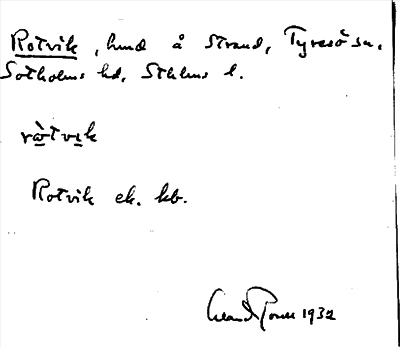 Rotvik, lund å Strand, Tyresö sn.
Sotholms hd, Sthlms l.
ròtvik
Rotvik ek. kb.
1932